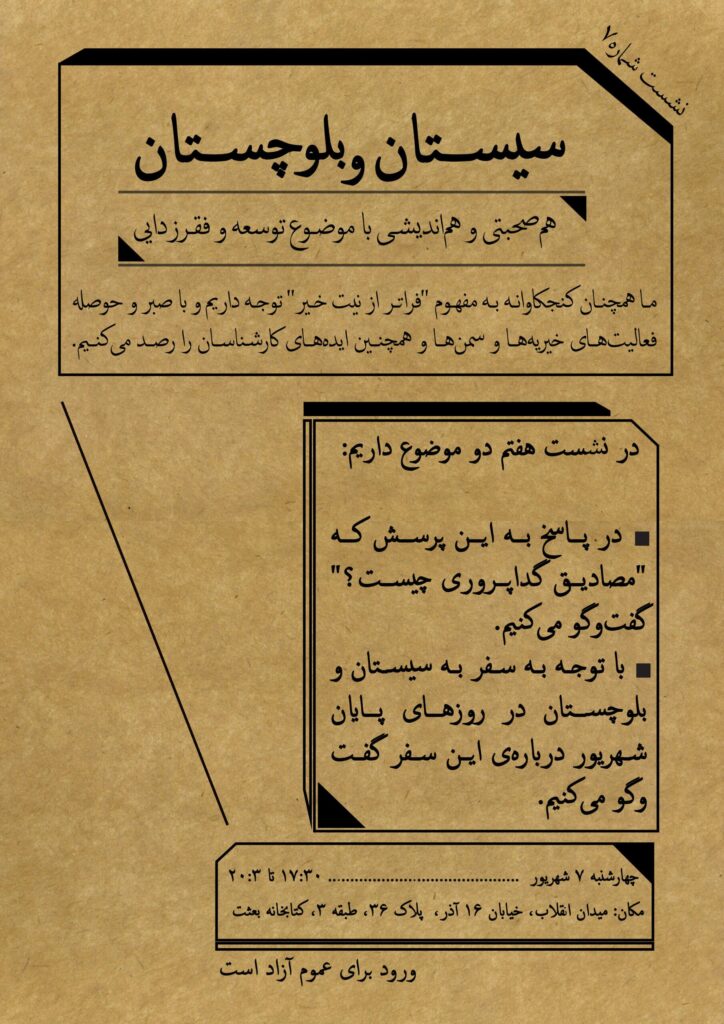 نشست شماره ۷
سیستان و بلوچستان
هم‌صحبتی و هم‌اندیشی با موضوع توسعه و فقرزدایی
ما همچنان کنجکاوانه به مفهوم "فراتر از نیت خیر" توجه داریم و با صبر و حوصله
فعالیت‌های خیریه‌ها و سمن‌ها و همچنین ایده‌های کارشناسان را رصد می‌کنیم.
در نشست هفتم دو موضوع داریم:
■ در پاسخ به این پرسش که
"مصادیق گداپروری چیست؟"
گفت‌وگو می‌کنیم.
■ با توجه به سفر به سیستان و
بلوچستان در روزهای پایان
شهریور درباره‌ی این سفر گفت
وگو می‌کنیم.
چهارشنبه ۷ شهریور ........................................ ۱۷:۳۰ تا ۲۰:۳۰
مکان: میدان انقلاب، خیابان ۱۶ آذر، پلاک ۳۶، طبقه ۳، کتابخانه بعثت
ورود برای عموم آزاد است